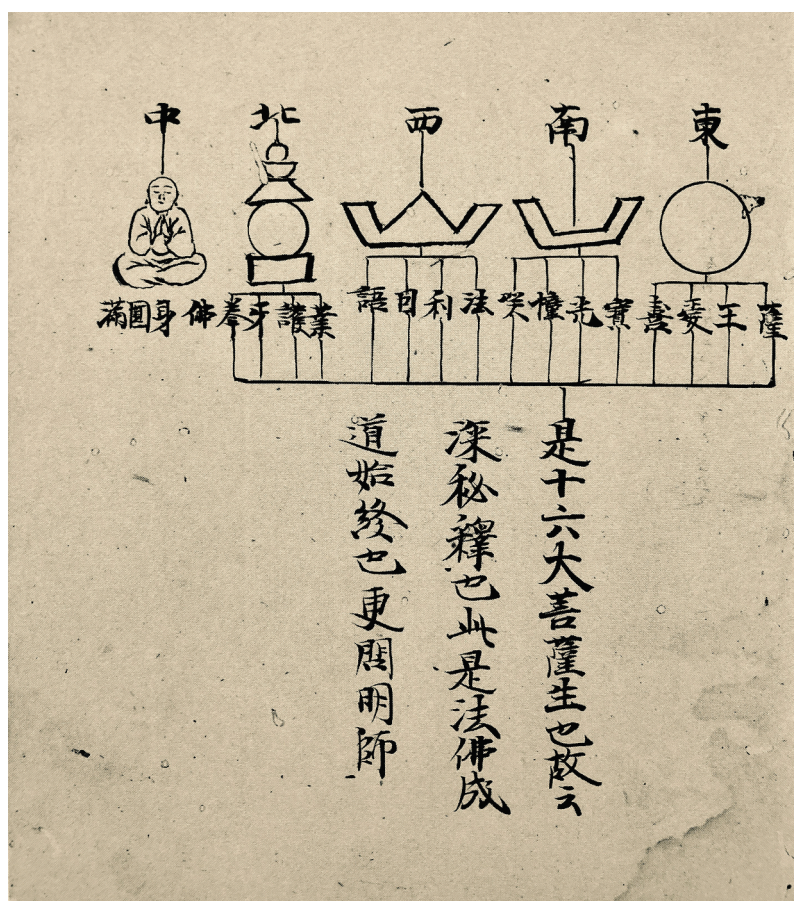 東 南 西 北 中
薩 王 愛 喜 寶 光 幢 咲 法 利 因 語 業 護 牙 拳 佛 身 圓 滿
是十六大菩薩生也故云
深秘釋也此是法佛成
道始終也更問明師